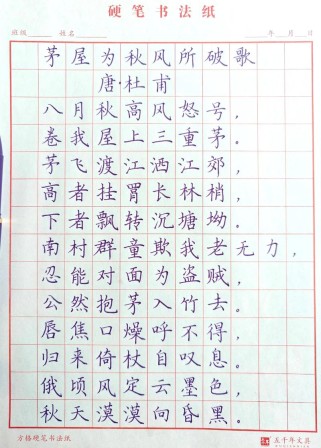 硬笔书法纸
班级 姓名 年 月 日
茅屋为秋风所破歌
唐·杜甫
八月秋高风怒号，
卷我屋上三重茅。
茅飞渡江洒江郊，
高者挂罥长林梢，
下者飘转沉塘坳。
南村群童欺我老无力，
忍能对面为盗贼，
公然抱茅入竹去。
唇焦口燥呼不得，
归来倚杖自叹息。
俄顷风定云墨色，
秋天漠漠向昏黑。
方格硬笔书法纸 五千年文具